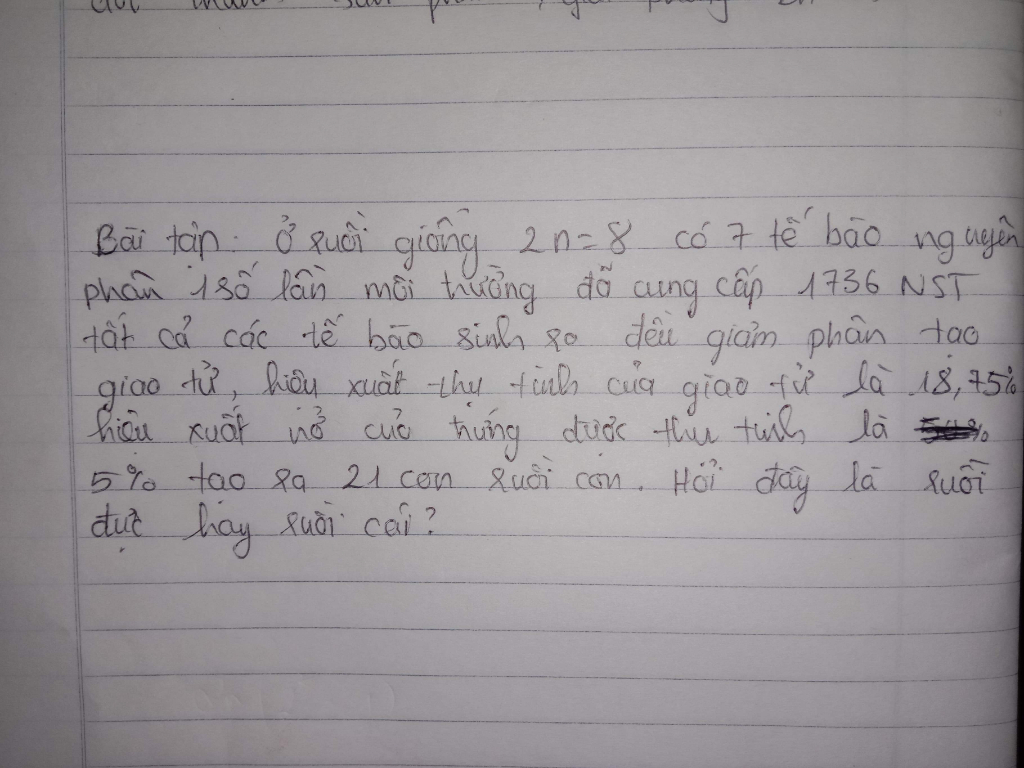 Bài tập: Ở ruồi giống 2n=8 có 7 tế bào nguyên
phân 1 số lần môi trường đã cung cấp 1736 NST
tất cả các tế bào sinh ra đều giảm phân tạo
giao tử, hiệu xuất thụ tinh của giao tử là 18,75%
hiệu xuất nở của trứng được thụ tinh là
5% tạo ra 21 con ruồi con. Hỏi đây là ruồi
đực hay ruồi cái?